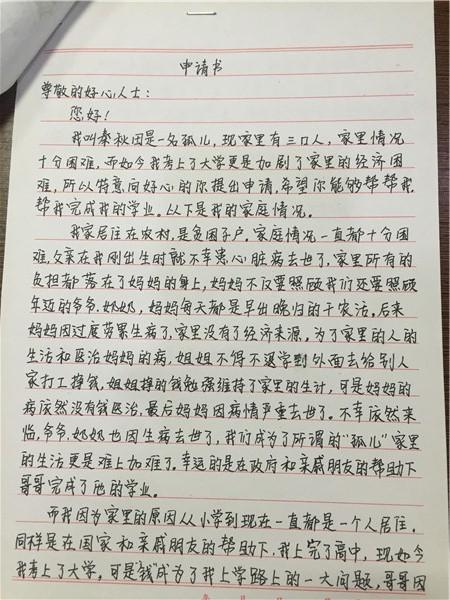 申请书
尊敬的好心人士:
您好!
我叫秦秋因是一名孤儿,现家里有三口人,家里情况
十分困难,而如今我考上了大学更是加剧了家里的经济困
难,所以特意向好心的你提出申请,希望你能够帮帮我,
帮我完成我的学业。以下是我的家庭情况。
我家居住在农村,是贫困子户。家庭情况一直都十分困
难,父亲在我刚出生时就不幸患心脏病去世了,家里所有的
负担都落在了妈妈的身上,妈妈不仅要照顾我们还要照顾
年迈的爷爷.奶奶,妈妈每天都是早出晚归的干农活,后来
妈妈因过度劳累生病了,家里没有了经济来源,为了家里的人的
生活和医治妈妈的病,姐姐不得不退学到外面去给别人
家打工挣钱,姐姐挣的钱勉强维持了家里的生计,可是妈妈的
病依然没有钱医治,最后妈妈因病情严重去世了。不幸依然来
临,爷爷.奶奶也因生病去世了,我们成为了所谓的“孤儿”家里
的生活更是难上加难了。幸运的是在政府和亲戚朋友的帮助下
哥哥完成了他的学业。
而我因为家里的原因从小学到现在一直都是一个人居住,
同样是在国家和亲戚朋友的帮助下,我上完了高中,现如今
我考上了大学,可是“钱”成为了我上学路上的一大问题,哥哥因